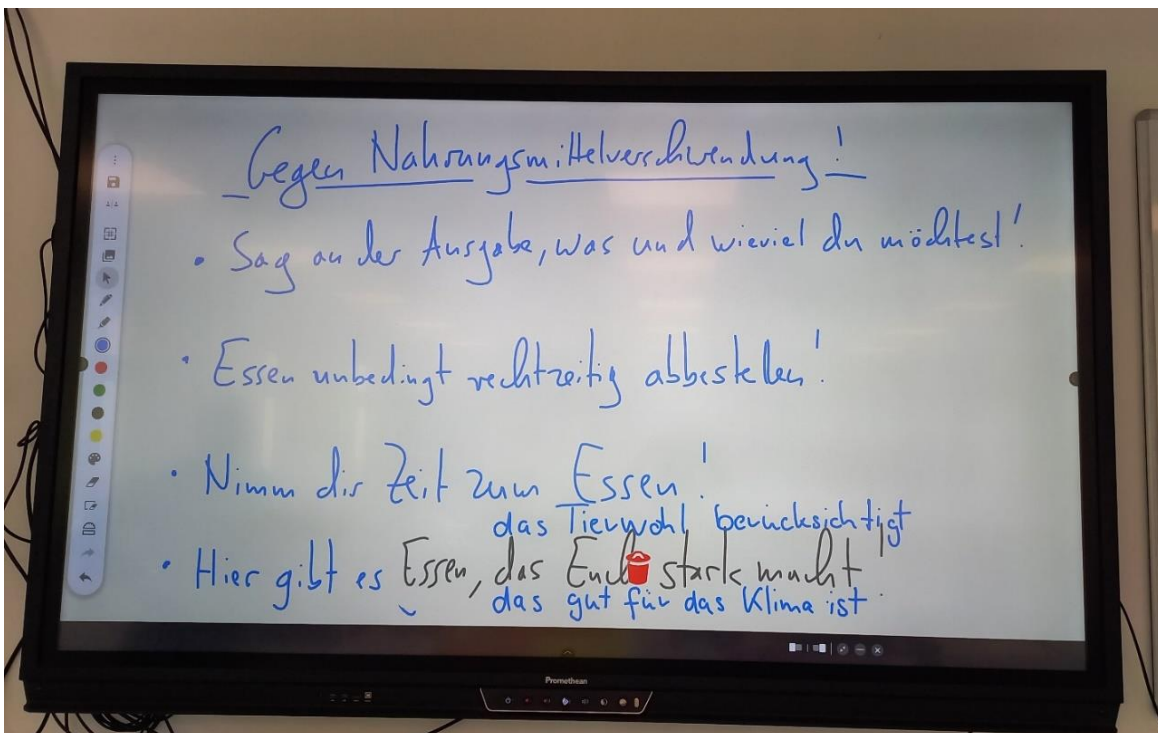 Gegen Nahrungsmittelverschwendung!
• Sag an der Ausgabe, was und wieviel du möchtest!
• Essen unbedingt rechtzeitig abbestellen!
• Nimm dir Zeit zum Essen!
das Tierwohl berücksichtigt
• Hier gibt es Essen, das Euch stark macht!
das gut für das Klima ist.
Promethean